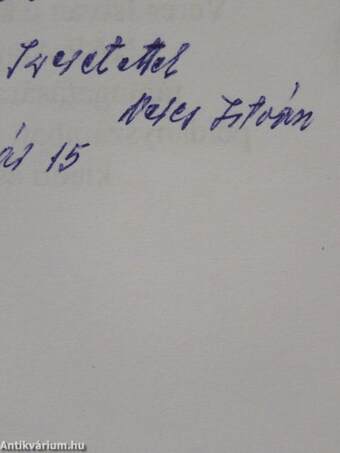 Szeretettel
Veres István
ás 15
Antikvárium.hu